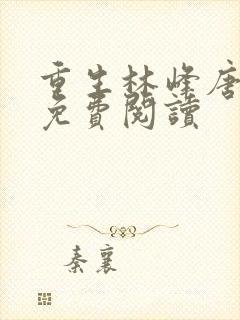 重生林峰唐
免費閱讀
秦襄